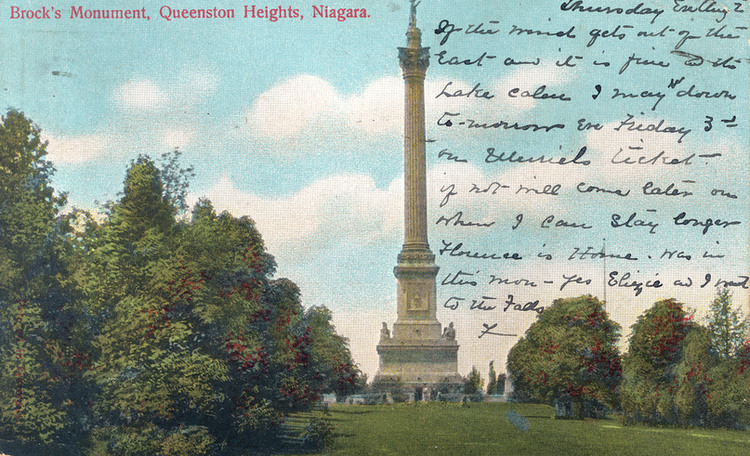 Brock's Monument, Queenston Heights, Niagara.
Thursday Evening 2
If the wind gets out of the
East and it is fine and the
Lake calm I may run down
to-morrow Eve Friday 3rd
on Muriel's ticket -
if not will come later on
when I can stay longer
Florence is Home. was in
this mon - yes Elizie and I went
to the Falls